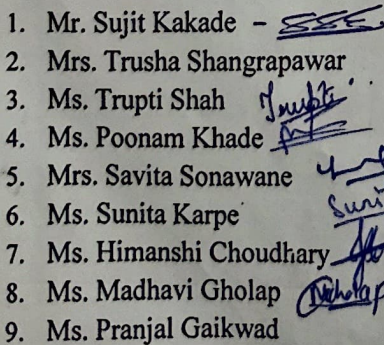 1. Mr. Sujit Kakade -
2. Mrs. Trusha Shangrapawar
3. Ms. Trupti Shah Trupti
4. Ms. Poonam Khade
5. Mrs. Savita Sonawane
6. Ms. Sunita Karpe Suni
7. Ms. Himanshi Choudhary
8. Ms. Madhavi Gholap
9. Ms. Pranjal Gaikwad